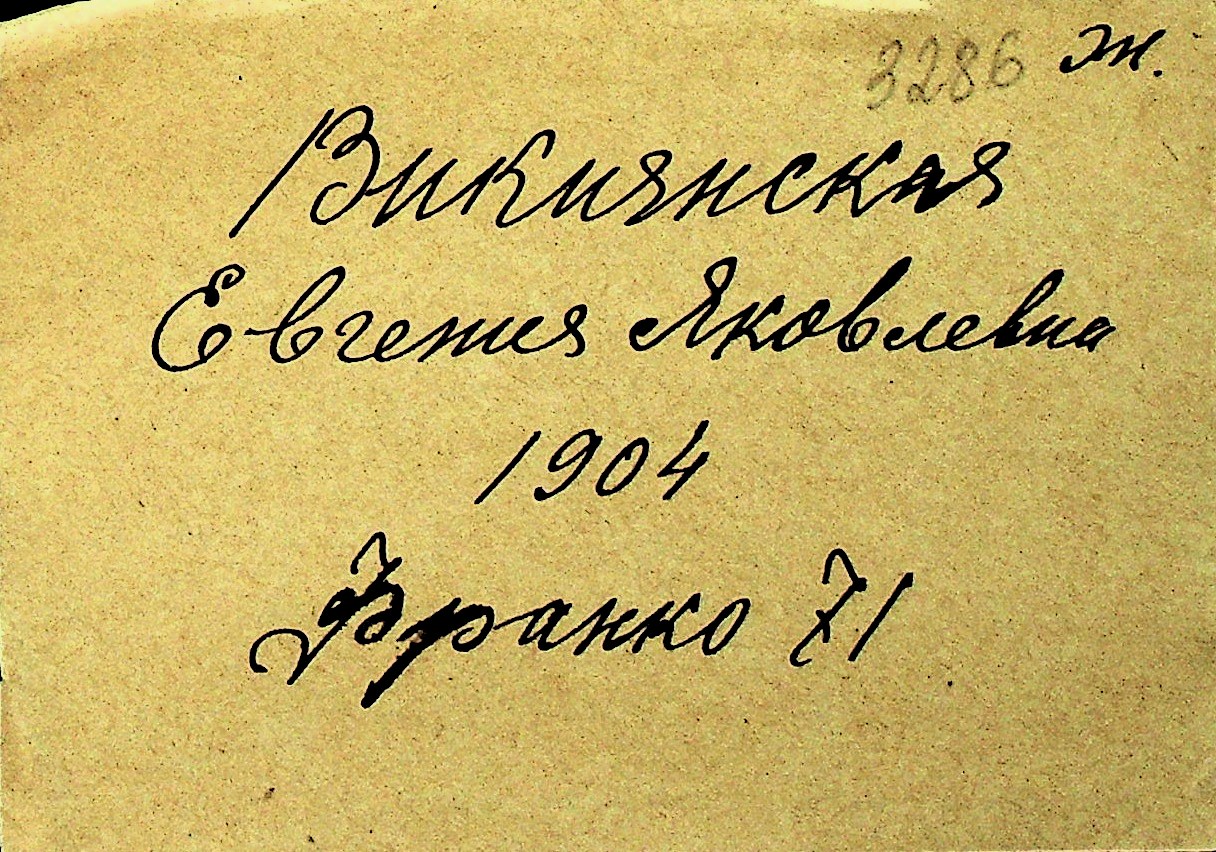 3286 ж.
Викиянская
Евгения Яковлевна
1904
Франко 71